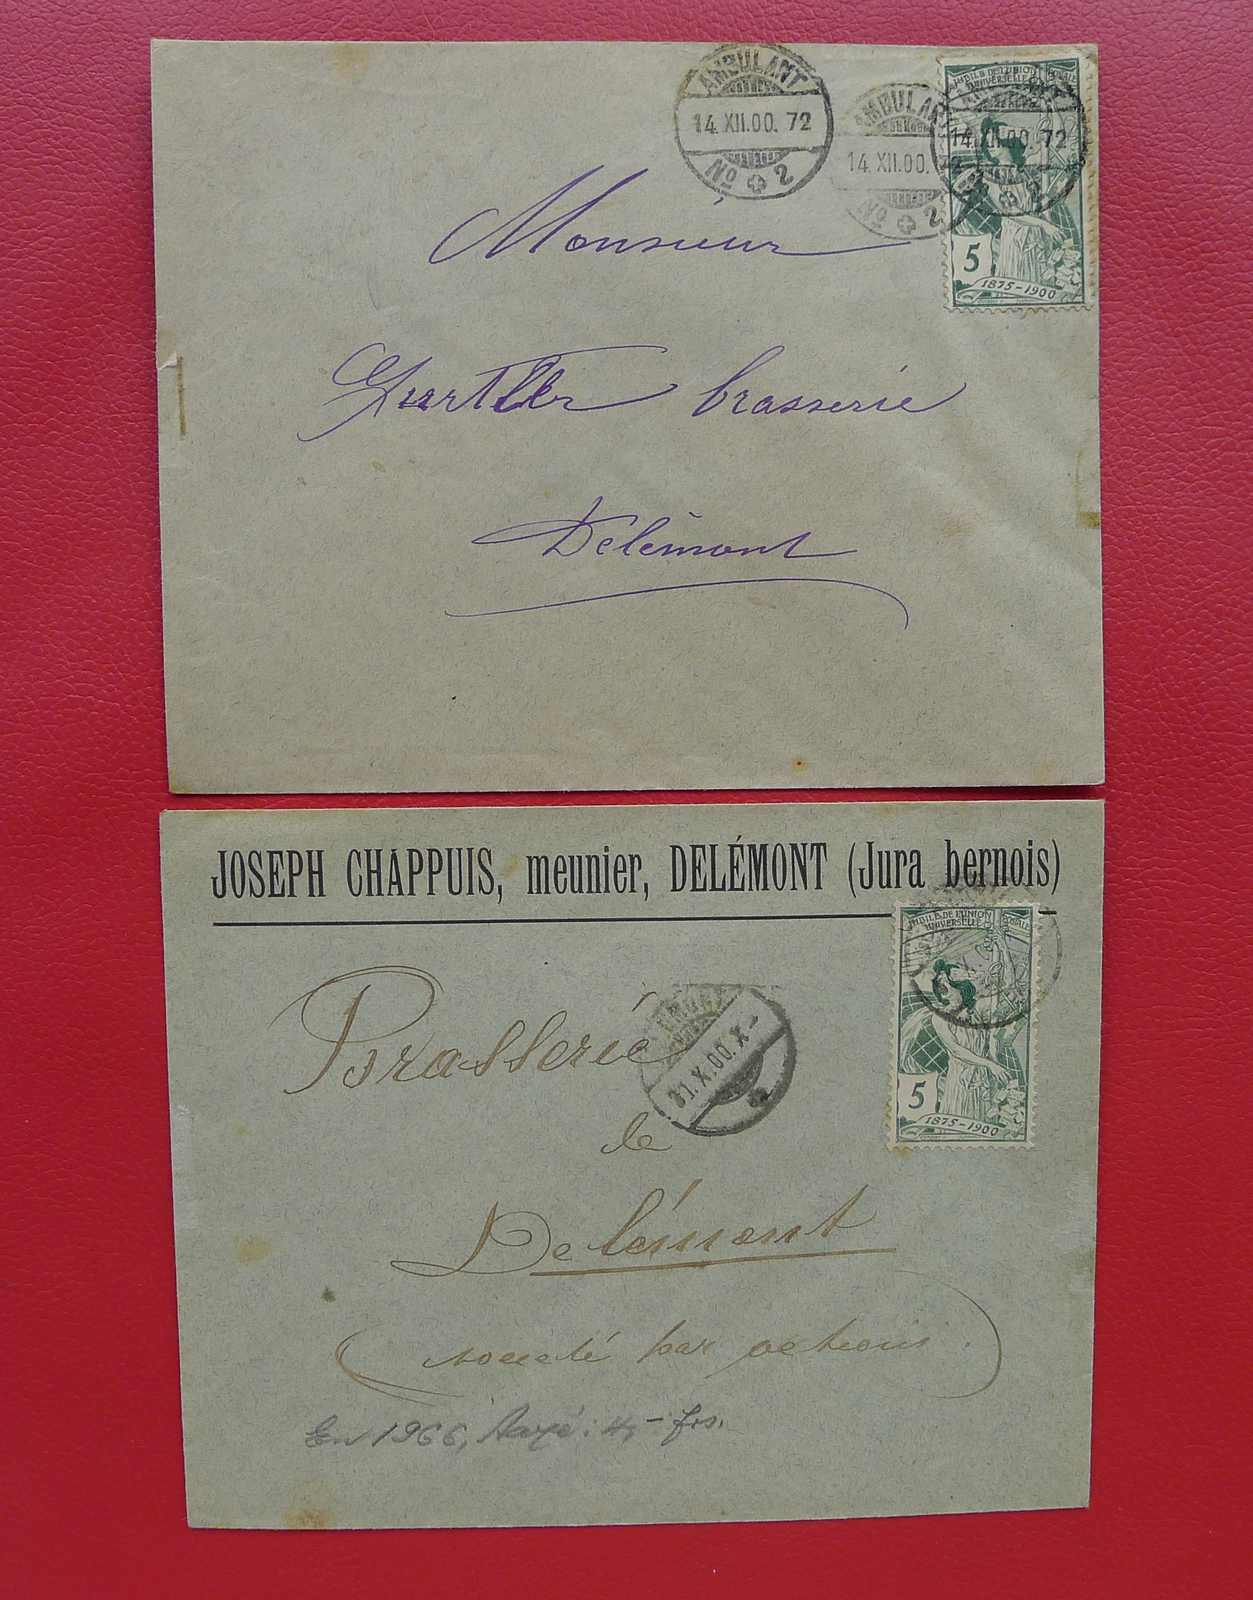 AMBULANT
14.XII.00. 72
No 2
AMBULANT
14.XII.00. 72
No 2
14.XII.00. 72
JUBILÉ DE L'UNION POSTALE
UNIVERSELLE
5
1875-1900
Monsieur
Gurtler brasserie
Delémont
JOSEPH CHAPPUIS, meunier, DELÉMONT (Jura bernois)
JUBILÉ DE L'UNION POSTALE
UNIVERSELLE
5
1875-1900
X.00.X-
Brasserie
de
Delémont
(société par actions.)
En 1966, payé: 4,- frs.